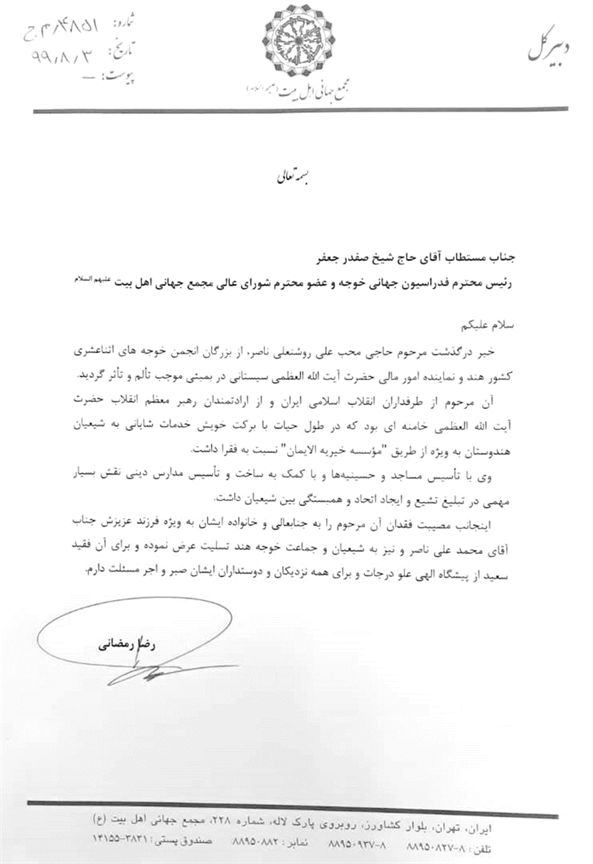 دبیرکل
شماره: ۴۸۵۱/م ج
تاریخ: ۹۹/۸/۳
پیوست: –
مجمع جهانی اهل بیت
بسمه تعالی
جناب مستطاب آقای حاج شیخ صفدر جعفر
رئیس محترم فدراسیون جهانی خوجه و عضو محترم شورای عالی مجمع جهانی اهل بیت علیهم السلام
سلام علیکم
خبر درگذشت مرحوم حاجی محب علی روشنعلی ناصر، از بزرگان انجمن خوجه های اثناعشری
کشور هند و نماینده امور مالی حضرت آیت الله العظمی سیستانی در بمبئی موجب تألم و تأثر گردید.
آن مرحوم از طرفداران انقلاب اسلامی ایران و از ارادتمندان رهبر معظم انقلاب حضرت
آیت الله العظمی خامنه ای بود که در طول حیات با برکت خویش خدمات شایانی به شیعیان
هندوستان به ویژه از طریق "مؤسسه خیریه الایمان" نسبت به فقرا داشت.
وی با تأسیس مساجد و حسینیه‌ها و با کمک به ساخت و تأسیس مدارس دینی نقش بسیار
مهمی در تبلیغ تشیع و ایجاد اتحاد و همبستگی بین شیعیان داشت.
اینجانب مصیبت فقدان آن مرحوم را به جنابعالی و خانواده ایشان به ویژه فرزند عزیزش جناب
آقای محمد علی ناصر و نیز به شیعیان و جماعت خوجه هند تسلیت عرض نموده و برای آن فقید
سعید از پیشگاه الهی علو درجات و برای همه نزدیکان و دوستداران ایشان صبر و اجر مسئلت دارم.
رضا رمضانی
ایران، تهران، بلوار کشاورز، روبروی پارک لاله، شماره ۲۲۸، مجمع جهانی اهل بیت (ع)
تلفن: ۸-۸۸۹۵۰۸۲۷ ۸-۸۸۹۵۰۹۳۷ نمابر: ۸۸۹۵۰۸۸۲ صندوق پستی: ۳۸۳۱-۱۴۱۵۵